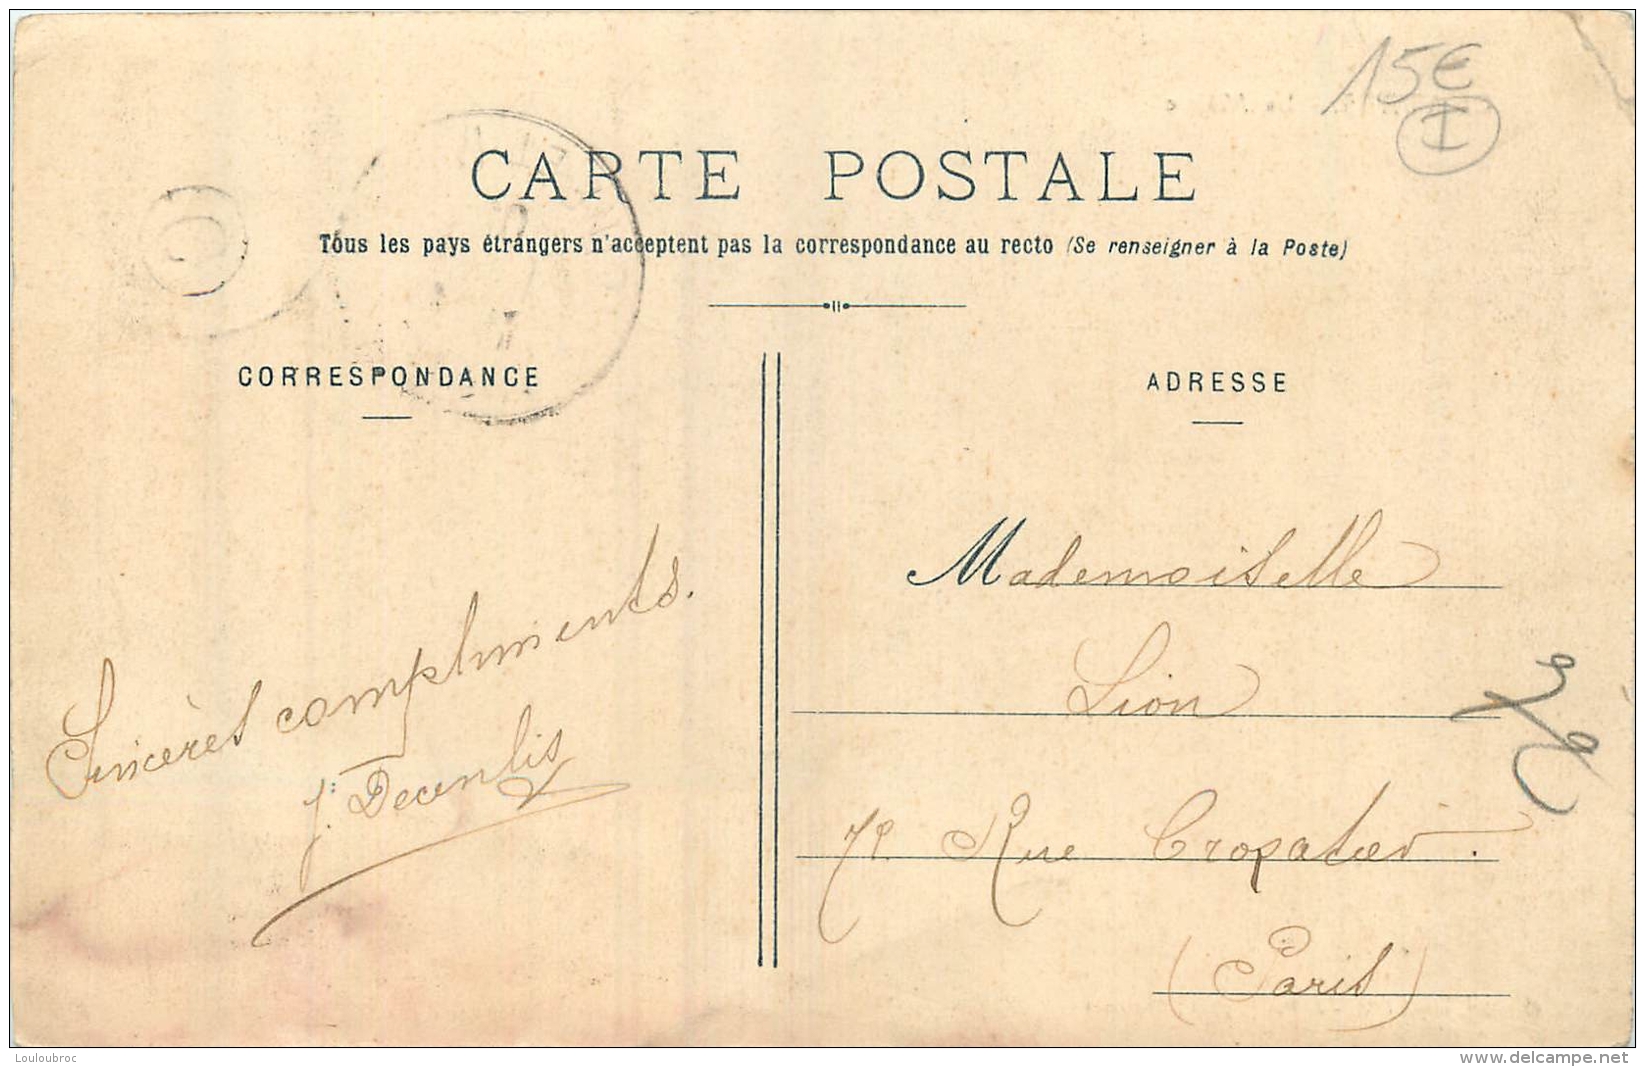 15€
I
CARTE POSTALE
Tous les pays étrangers n'acceptent pas la correspondance au recto (Se renseigner à la Poste)
CORRESPONDANCE
ADRESSE
Sincères compliments.
J. Decenlis
Mademoiselle
Lion
Rue Crozatier.
(Paris)
Louloubroc
www.delcampe.net